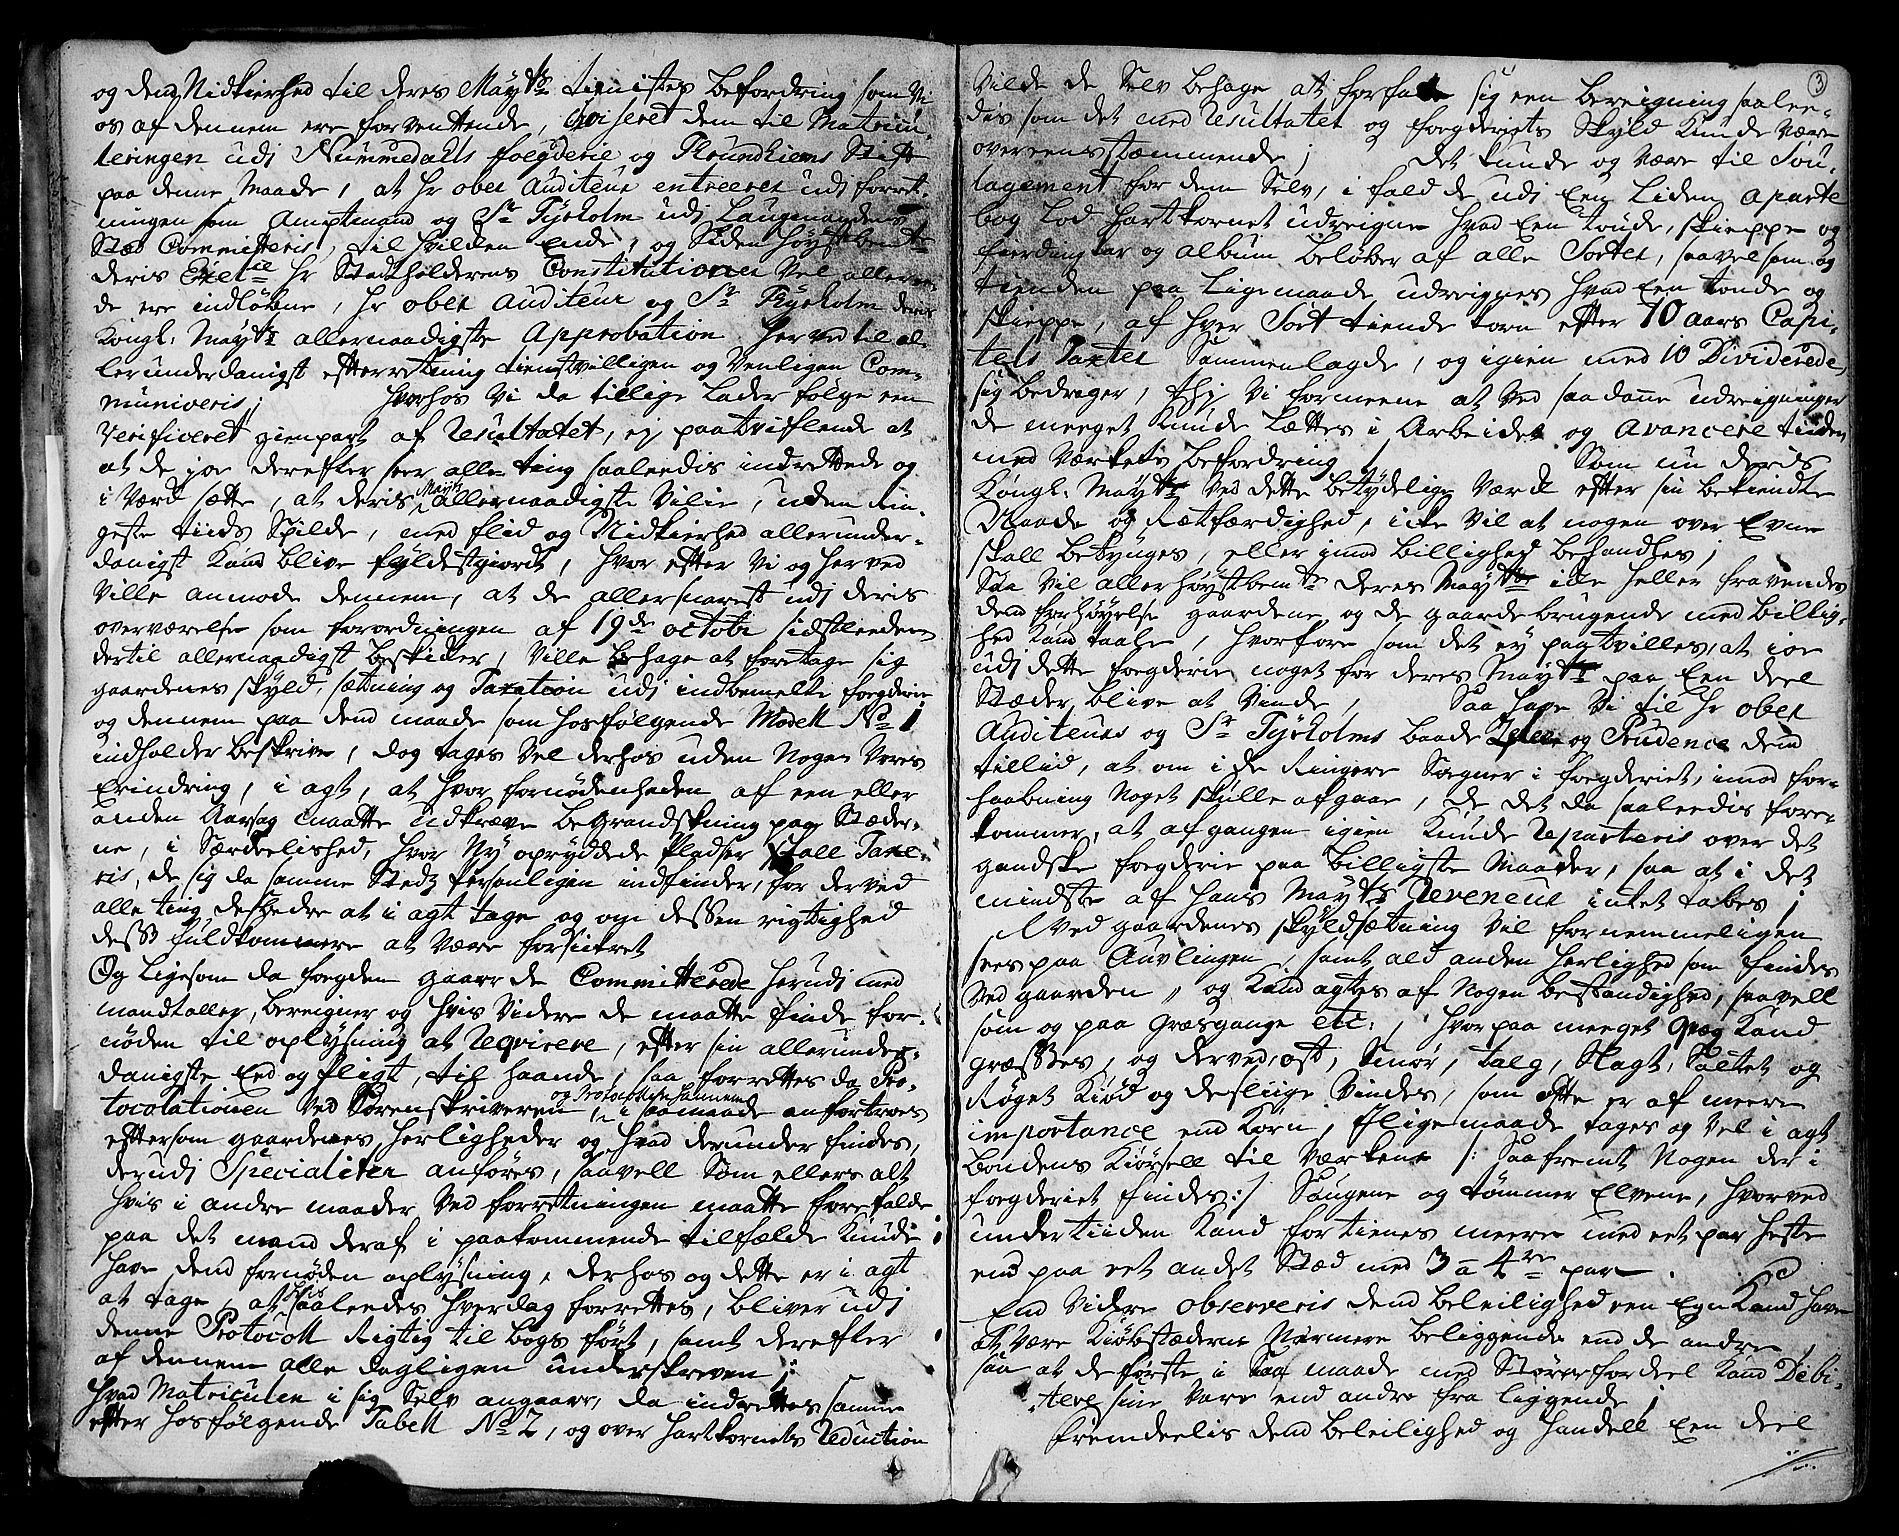 og dend Nidkierhed til deres Mayts tienistes befordring som Vi
os af dennem ere forventtende, aviseret dem til Matricu-
leringen udj Nummedahls foegderie og Trundhiems Stift
paa denne Maade, at hr ober Auditeur entreerer udj forret-
ningen som Amptmand og Sr Tyrholm udj Laugmandens
Stæd Committeris, til hvilken Ende, og Siden høystbemte
deris Excelce hr Stadtholderens Constitutioner vel allere-
de ere indløbne, hr ober Auditeur og Sr Tyrholm deris
Kongl: Mayts allernaadigste Approbation herved til al-
lerunderdanigst efterretning tienstvilligen og Venligen Com-
municeris; hvorhos Vi da tillige lader følge een
Verificeret gienpart af Resultatet, ej paatviflende at
at de joe derefter seer alle ting saaleedis indrettede og
i Værd sætte, at deris Mayts allernaadigste Vilie, uden Rin-
geste tiids Spilde, med flid og Nidkierhed allerunder-
danigst Kand blive fyldestgiordt, hvor efter Vi og herved
Ville anmode dennem, at de allersnarest udj deris
overværelse som forordningen af 19de octobr sidstleeden
dertil allernaadigst beskicker, Ville behage at foretage sig
gaardenes skyld, sætning og Taxation udj indbemelte foegderie
og dennem paa dend maade som hosfølgende Modell No 1
indholder beskrive, dog tages vel derhos uden Nogen Vores
Erindring, i agt, at hvor fornødenheden af een eller
anden Aarsag maatte udkræve begrandskning paa Stæder-
ne, i Særdeelished, hvor Ny opryddede Pladser skall Taxe-
ris, de sig da samme Stedz Personligen indfinder, for derved
alle ting desbedre at i agt tage og om dessen rigtighed
dess fuldkommere at være forsickret
Og ligesom da foegden gaar de Committerede herudj med
mandtaller, bereigner og hvis Videre de maatte finde for-
nøden til oplysning at Reqvirere, efter sin allerunder-
danigste Eed og Pligt, til haande, saa forrettes da Pro-
tocolationen ved Sorenskriveren og Protocollen sammen i saa maade anfortroes
eftersom gaardenes herligheder og hvad derunder findes,
derudj Specialiter anføres, saavell som ellers alt
hvis i andre maader ved forretningen maatte forefalde
paa det mand deraf i paakommende tilfælde Kunde
have dend fornøden oplysning, derhos og dette er i agt
at tage, at hvis saaleedes hverdag forrettes, bliver udj
denne Protocoll Rigtig til bogs ført, samt derefter
af dennem alle dagligen underskreven;
Hvad Matriculen i sig Selv angaar, da indrettes samme
efter hosfølgende Tabell No 2, og over hartkornets Reduction
3
Vilde de Selv behage at forfatte sig een bereigning saalee-
dis som det med Resultatet og foegderiets Skyld Kunde være
overeensstemmende; det Kunde og være til Sou-
lagement for dem Selv, i fald de udj Een liden aparte
bog lod hartkornet udreigne hvad Een tønde, skieppe og
fierdingkar og album beløber af alle Sorter, saavelsom og
tienden paa ligemaade udreignes hvad Een tønde og
skieppe, af hver Sort tiende korn efter 10 aars Capi-
tels Taxter Sammenlagde, og igien med 10 Dividerede
sig bedrager, thj Vi formeene at ved saadanne udreigninger
de meeget Kunde Lættes i Arbeidet og avancere tiden
med værkets befordring; Som nu deris
Kongl: Mayts ved dette betydelige Værck efter sin bekiendte
Naade og Retfærdighed, icke vil at nogen over Evne
skall betynges, eller imod billighed behandles;
Saa vil allerhøystbemte deres Mayts icke heller fravendes
dend forhøyelse gaardene og de gaardebrugende med billig-
hed Kand taale, hvorfore som det ey paatvilles, at joe
udj dette foegderie noget for deres Mayts paa Een deel
Stæder blive at vinde, Saa have Vi til hr ober
Auditeurs og Sr Tyrholms baade Zelee og Prudence dend
tillid, at om i de Ringere Sogner i foegderiet, imod for-
haabning Noget skulle afgaae, de det da saaleedis fore-
kommer, at afgangen igien Kunde Reparteris over det
gandske foegderie paa billigste Maader, saa at i det
mindste af hans Mayts Reveneur intet tabes;
Ved gaardenes skyldsætning vil fornemmeligen
sees paa Auvlingen, samt ald anden herlighed som findes
ved gaarden, og Kand agtes af Nogen bestandighed, saavell
som og paa græsgange etc:, hvorpaa meeget qvæg Kand
græsses, og derved, ost, smør, talg, slagt, Saltet og
Røget Kiød og desliige vindes, som ofte er af meere
importance end Korn, Iligemaade tages og vel i agt
bondens Kiørsell til værkene /: Saafremt Nogen der i
foegderiet findes :/ Saugene og tømmer Elvene, hvorved
undertiiden Kand fortienes meere med eet par heste
end paa eet andet Stæd med 3 a 4re par.
End Videre observeris dend beleilighed een Egn Kand have
at være Kiøbstæderne Nærmere beliggende end de andre
saa at de første i saa maade med Større fordeel Kand Debi-
tere sine Vare end andre fra liggende;
fremdeelis dend beleilighed og handell Een deel